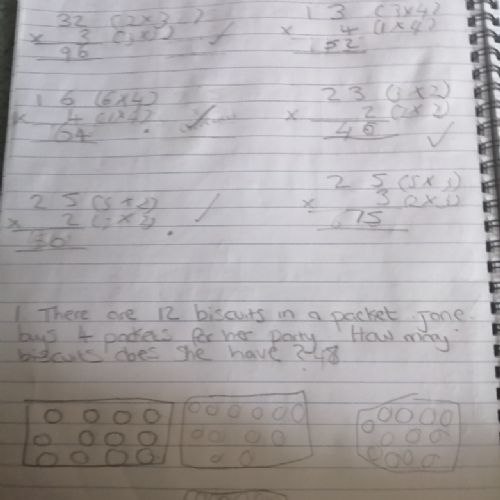 32 (2x3
x 3 (3x
96
13 (3x4)
x 4 (1x4)
52
16 (6x4)
x 4
64
23 (3x2)
x 2 (2x2)
46
25 (5x2)
x 2
25 (5x3)
x 3 (2x3)
75
1 There are 12 biscuits in a packet Jane
buys 4 packets for her party. How many
biscuits does she have? 48